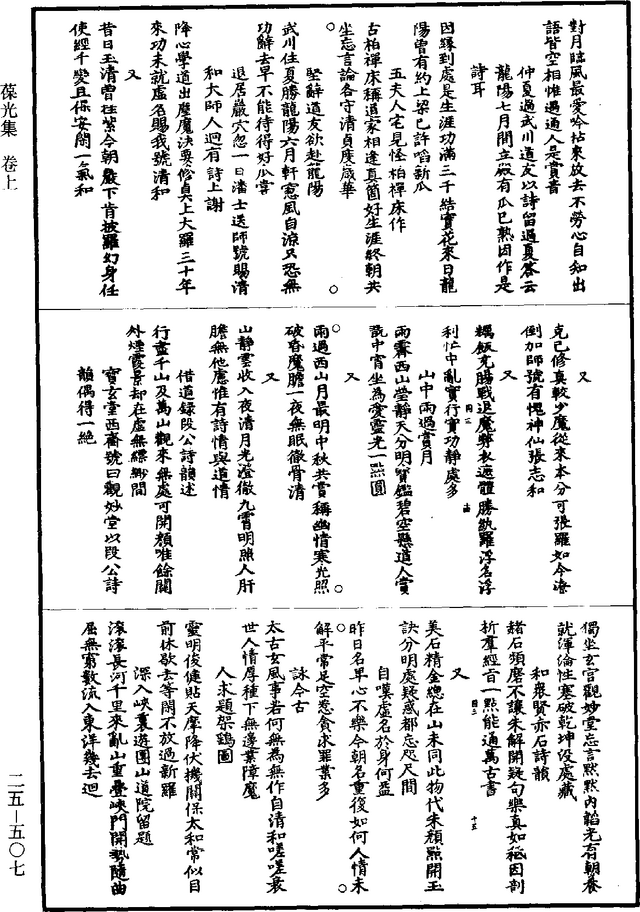 葆光集 卷上
對月臨風最愛吟拈來放去不勞心自知出
語皆空相惟遇通人是賞音
仲夏過武川道友以詩留過夏答云
龍陽七月間立殿有瓜已熟因作是
詩耳
因緣到處是生涯功滿三千結實花來日龍
陽曾有約上梁已許啗新瓜
五夫人宅見怪柏禪床作
古柏禪床稱道家相逢真箇好生涯終朝共
坐忘言論各守清貞度歲華
堅辭道友欲赴龍陽
武川住夏勝龍陽六月軒窓風自涼只恐無
功辭去早不能待得好瓜嘗
退居巖穴忽一日潘士送師號賜清
和大師人迴有詩上謝
降心學道出塵魔決要修真上大羅三十年
來功未就虛名賜我號清和
又
昔日玉清曾挂紫今朝巖下肯披羅幻身任
使經千變且保安閑一氣和
又
克己修真較少魔從來本分可張羅如今潦
倒加師號有愧神仙張志和
又
糲飯充腸戰退魔弊衣遮體勝紈羅浮名浮
利忙中亂實行實功靜處多
山中雨過賞月
雨霽西山瑩靜天分明寶鑑碧空懸道人賞
翫中宵坐為愛靈光一點圓
又
雨過西山月最明中秋共賞稱幽情寒光照
破昏魔膽一夜無眠徹骨清
又
山靜雲收入夜清月光澄徹九霄明照人肝
膽無他應惟有詩情與道情
借道錄段公詩韻述
行盡千山及萬山觀來無處可開顏唯餘關
外煙霞景却在虛無縹緲間
寶玄堂西齋號曰觀妙堂以段公詩
韻偶得一絕
獨坐玄宮觀妙堂忘言默默內韜光有朝養
就渾淪性塞破乾坤沒處藏
和衆賢赤石詩韻
赭石頭磨不讓朱解開疑句樂真如秪因剖
析羣經旨一點能通萬古書
又
美石精金總在山未同此物代朱顏點開玉
訣分明處疑惑都忘咫尺間
自嘆虛名於身何益
昨日名卑心不樂今朝名重後如何人情未
解平常足空惹貪求罪業多
詠今古
太古玄風事若何無為無作自清和嗟嗟衰
世人情厚種下無邊業障魔
人求題架鷂圖
靈明俊健貼天摩降伏機關保太和常似目
前休歇去等閑不放過新羅
深入峽裏遊團山道院留題
滾滾長河千里來亂山重疊峽門開勢隨曲
屈無窮數流入東洋幾去迴
二五—五〇七